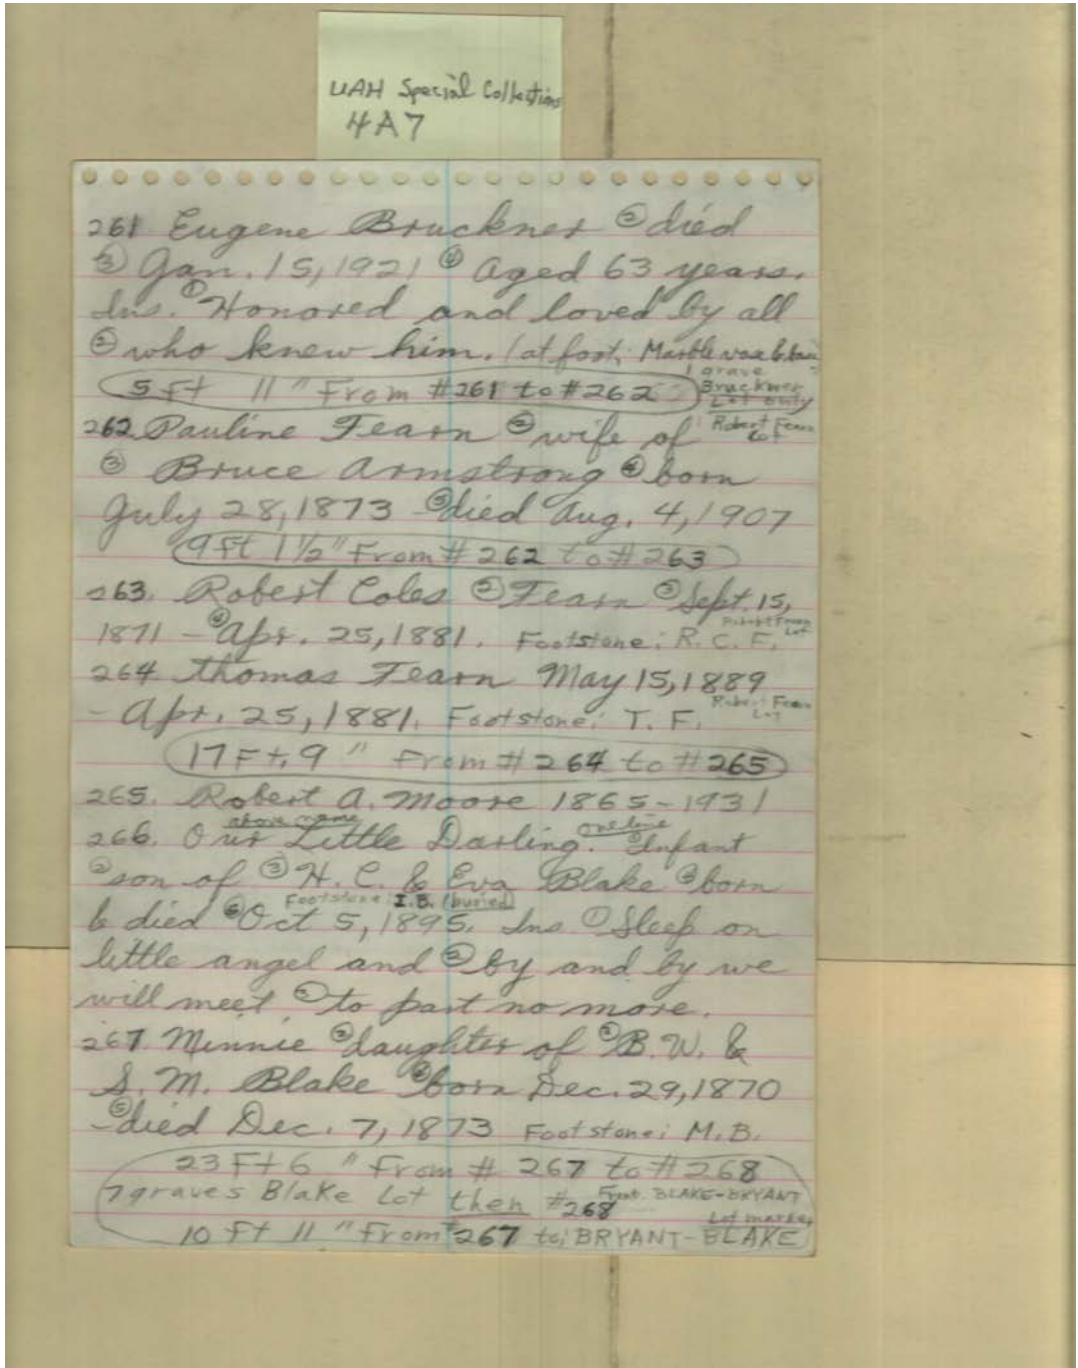 UAH Special Collections
4A7
261 Eugene Bruckner ② died
③ Jan. 15, 1921 ④ Aged 63 years.
Ins. ① Honored and loved by all
② who knew him. (at foot: Marble vase & base
1 grave
5 ft 11" From #261 to #262
Bruckner
Lot only
262. Pauline Fearn ② wife of
Robert Fearn
Lot
③ Bruce Armstrong ④ born
July 28, 1873 ⑤ died Aug. 4, 1907
9 ft 1 1/2" From # 262 to # 263
263. Robert Coles ② Fearn ③ Sept. 15,
Robert Fearn
Lot
1871 - ④ Apr. 25, 1881. Footstone: R. C. F.
264. Thomas Fearn May 15, 1889
Robert Fearn
Lot
- Apr. 25, 1881. Footstone: T. F.
17 Ft. 9 " From # 264 to # 265
265. Robert A. Moore 1865 - 1931
above name one line
266. Our Little Darling. ① Infant
② son of ③ H. C. & Eva Blake ④ born
Footstone: I.B. (buried)
& died Oct 5, 1895. Ins ① Sleep on
little angel and ② by and by we
will meet to part no more.
267. Minnie ② daughter of B. W. &
S. M. Blake ④ born Dec. 29, 1870
- ⑤ died Dec. 7, 1873 Footstone: M. B.
23 Ft 6 " From # 267 to # 268
7 graves Blake Lot then #268 Front. BLAKE-BRYANT
Lot marker
10 ft 11 " From #267 to: BRYANT-BLAKE